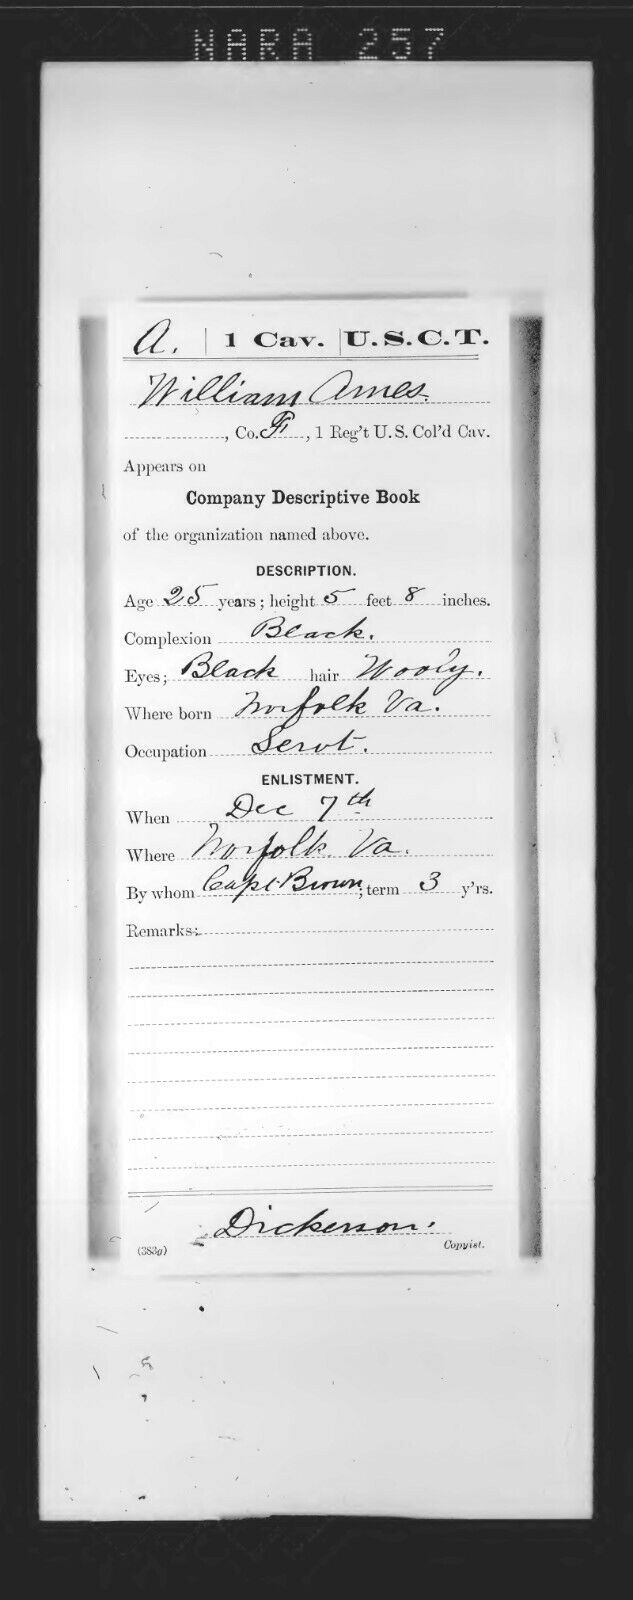 NARA 257
A. 1 Cav. U.S.C.T.
William Ames.
, Co. F, 1 Reg't U. S. Col'd Cav.
Appears on
Company Descriptive Book
of the organization named above.
DESCRIPTION.
Age 25 years; height 5 feet 8 inches.
Complexion Black.
Eyes; Black hair Wooly.
Where born Norfolk Va.
Occupation Servt.
ENLISTMENT.
When Dec 7th
Where Norfolk Va.
By whom Capt Brown; term 3 y'rs.
Remarks:
Dickerson.
(383g) Copyist.